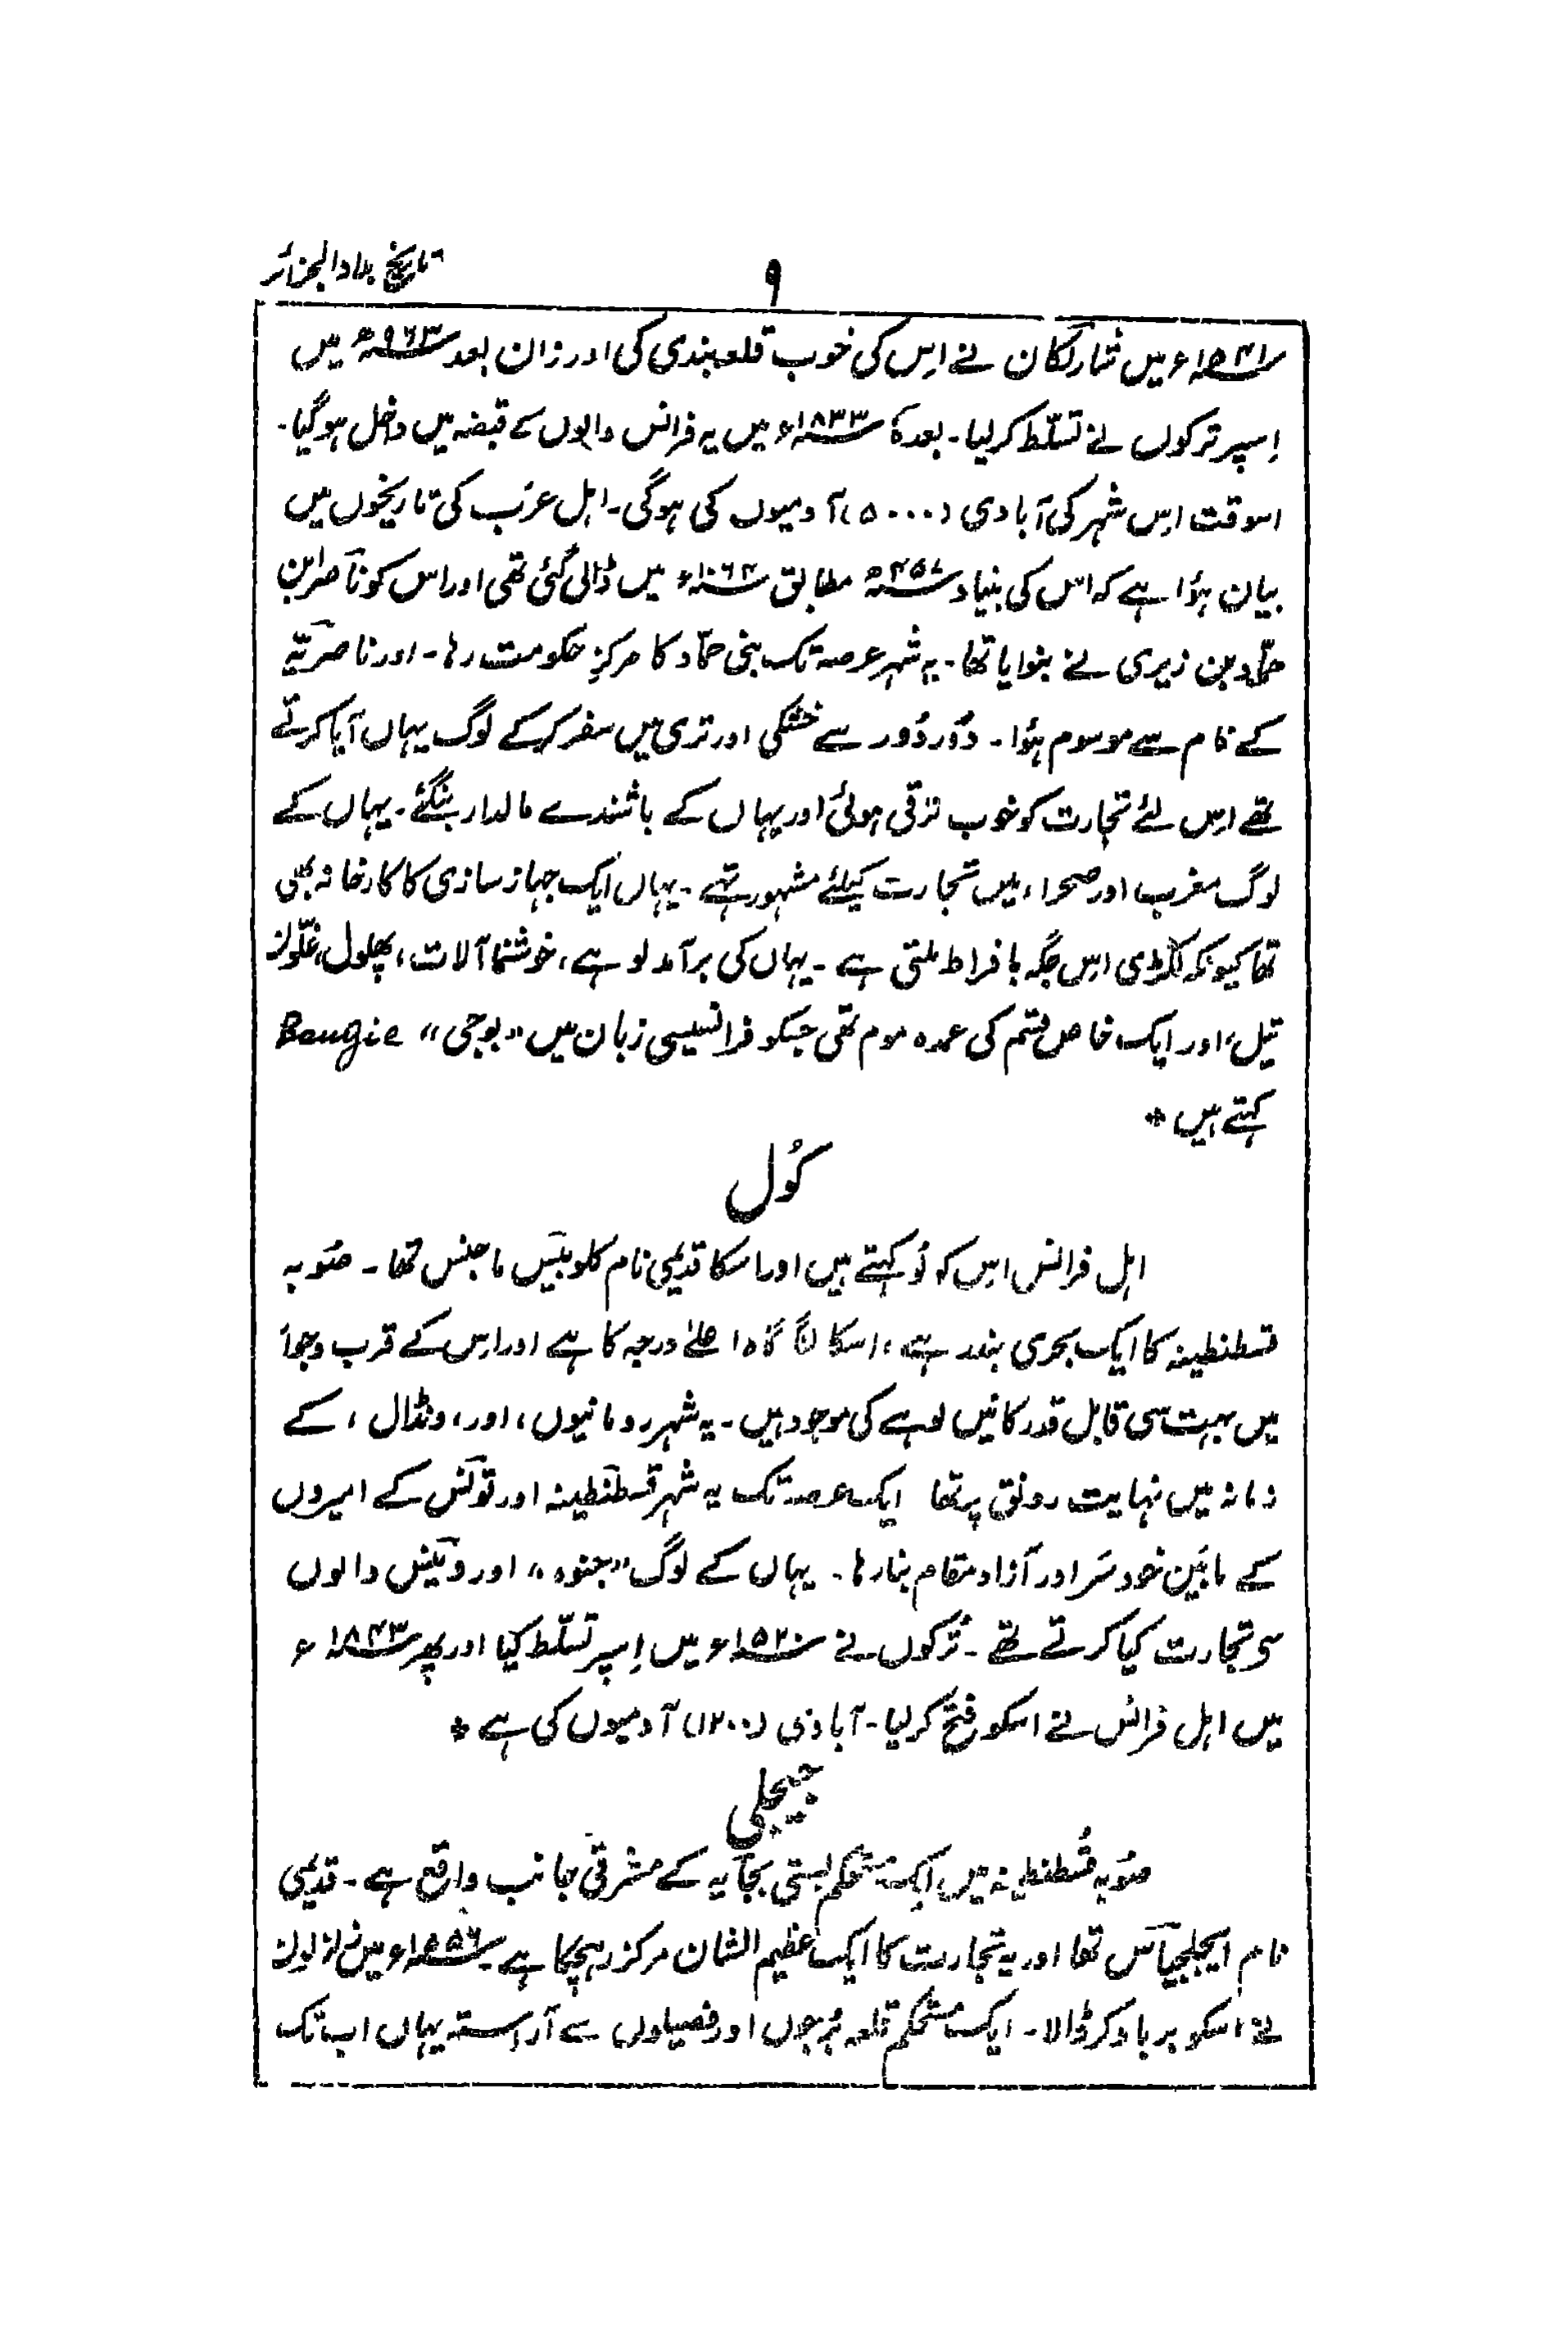 تاریخ بلاد الجزائر
۹
۱۵۴۱ء میں شارلکان نے اِس کی خوب قلعہ بندی کی اور زان بعد ۹۶۳ھ میں
اِسپر ترکوں نے تسلّط کرلیا۔ بعدہٗ ۱۸۳۳ء میں یہ فرانس والوں کے قبضہ میں داخل ہوگیا۔
اسوقت اِس شہر کی آبادی (۵۰۰۰) آدمیوں کی ہوگی۔ اہل عرَب کی تاریخوں میں
بیان ہؤا ہے کہ اس کی بنیاد ۴۵۷ھ مطابق ۱۰۶۴ء میں ڈالی گئی تھی اور اس کو ناصر ابن
حمّاد بن زیری نے بنوایا تھا۔ یہ شہر عرصہ تک بنی حمّاد کا مرکزِ حکومت رہا۔ اور ناصریّہ
کے نام سے موسوم ہؤا۔ دُور دُور سے خشکی اور تری میں سفر کرکے لوگ یہاں آیا کرتے
تھے اِس لئے تجارت کو خوب ترقی ہوئی اور یہاں کے باشندے مالدار بنگئے۔ یہاں کے
لوگ مغرب اور صحراء میں تجارت کیلئے مشہور تھے۔ یہاں ایک جہاز سازی کا کارخانہ بھی
تھا کیونکہ لکڑی اِس جگہ بافراط ملتی ہے۔ یہاں کی برآمد لوہے، خوشنما آلات، پھلوں، غلّوں،
تیل، اور ایک خاص قسم کی عمدہ موم تھی جسکو فرانسیسی زبان میں "بوجی" Bougie
کہتے ہیں *
کُول
اہل فرانس اِس کو کُو کہتے ہیں اور اسکا قدیمی نام کلوبیَس ماجنس تھا۔ صُوبہ
قسطنطینہ کا ایک بحری بندر ہے، اسکا لنگرگاہ اعلیٰ درجہ کا ہے اور اِس کے قرب وجوار
میں بہت سی قابل قدر کانیں لوہے کی موجود ہیں۔ یہ شہر رومانیوں، اور، ونڈال، کے
زمانہ میں نہایت رونق پر تھا ایک عرصہ تک یہ شہر قسطنطینہ اور تونس کے امیروں
کے مابَین خود سَر اور آزاد مقام بنا رہا۔ یہاں کے لوگ "جنوہ" اور وینس والوں
سی تجارت کیا کرتے تھے۔ تُرکوں نے ۱۵۲۰ء میں اِسپر تسلّط کیا اور پھر ۱۸۴۳ء
میں اہل فرانس نے اسکو فتح کرلیا۔ آبادی (۱۲۰۰) آدمیوں کی ہے *
جیجلی
صُوبہ قُسطنطینہ میں ایک مستحکم بستی بجآیہ کے مشرقی جانب واقع ہے۔ قدیمی
نام ایجلجیآس تھا اور یہ تجارت کا ایک عظیم الشان مرکز رہچکا ہے ۱۸۵۶ء میں زلزلوں
نے اسکو برباد کر ڈالا۔ ایک مستحکم قلعہ بُرجوں اور فصیلوں سے آراستہ یہاں اب تک